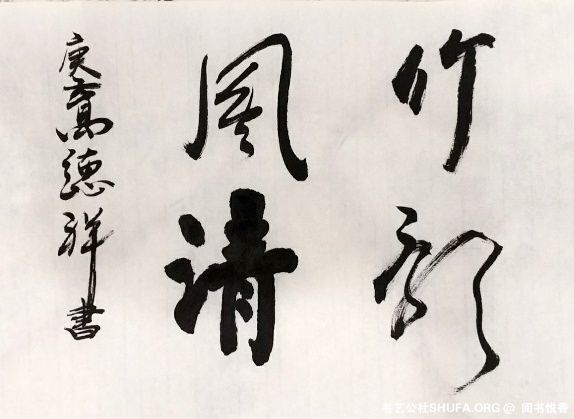 竹韻
風清
庚德祥書
书艺公社SHUFA.ORG @ 闻书悦香